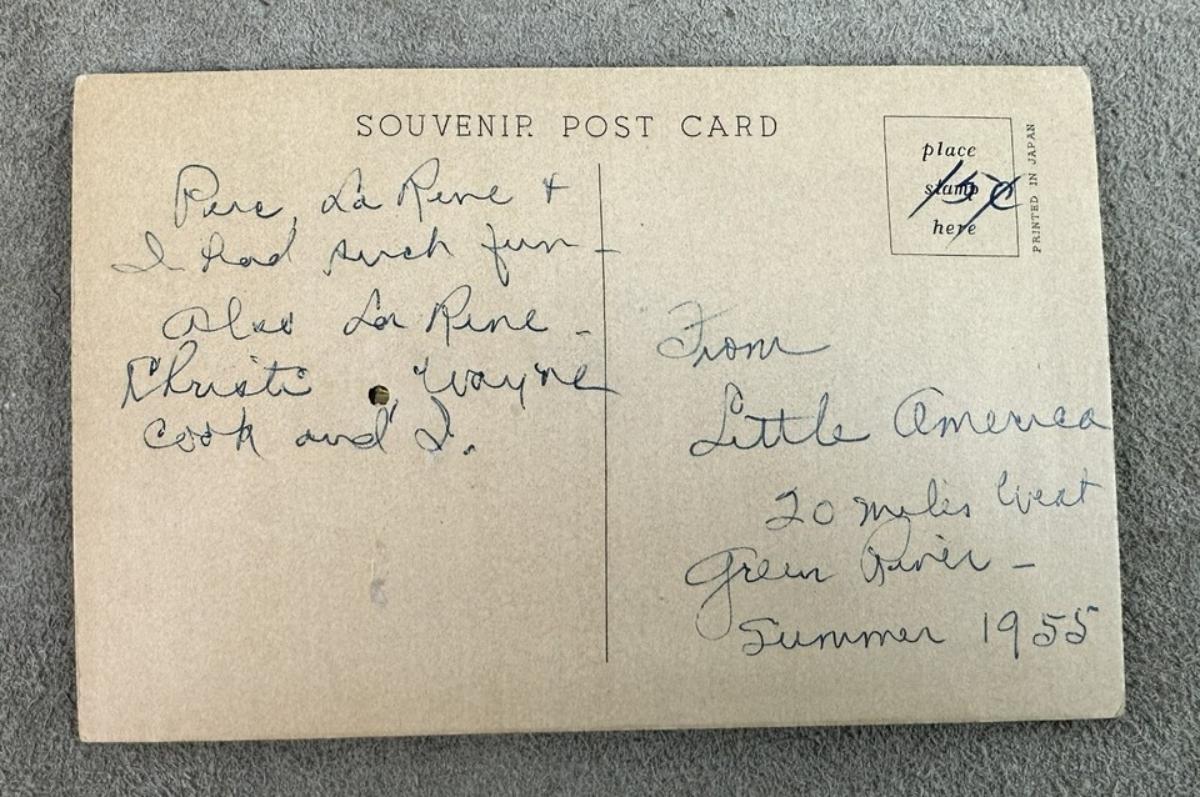 SOUVENIR POST CARD
Perc, La Rene +
I had such fun -
Also La Rene -
Christi, Wayne
Cook and I.
place
stamp
here
15¢
PRINTED IN JAPAN
From
Little America
20 miles West
Green River -
Summer 1955